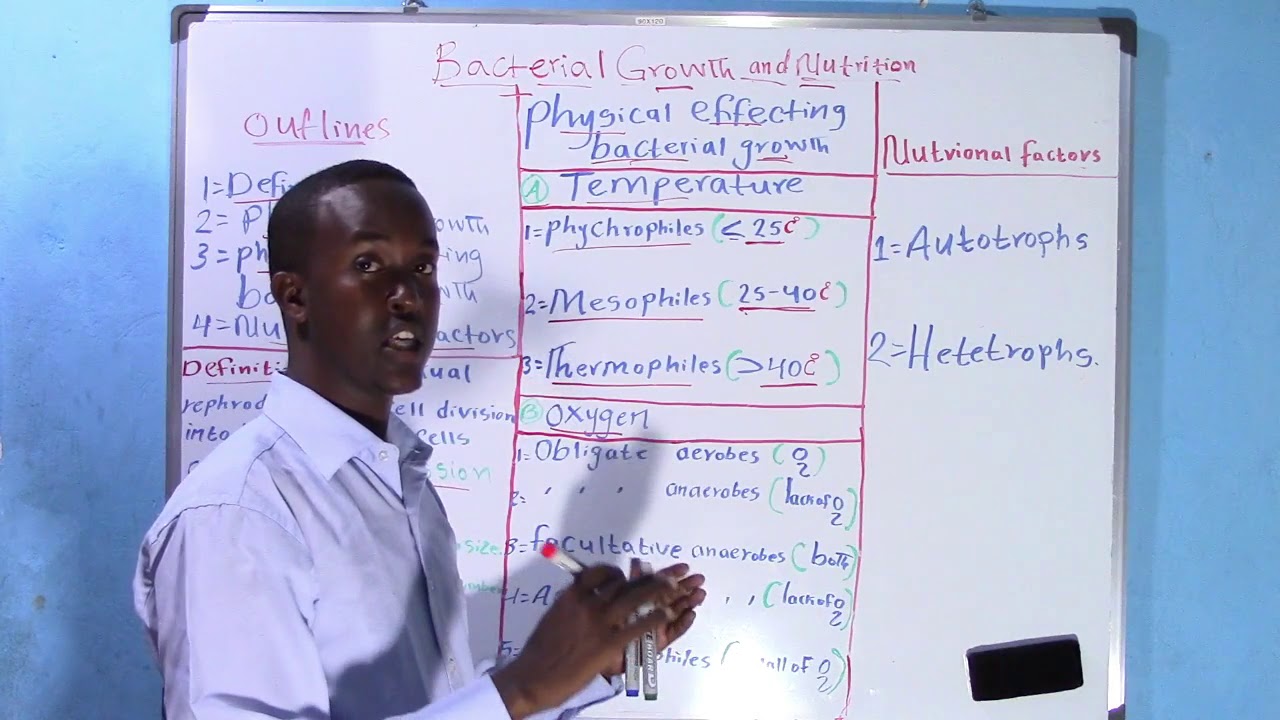 90X120
Bacterial Growth and Nutrition
Outlines
1=Defi
2= ph owth
3=ph ing
ba wth
4=Nu actors
Definiti ual
rephrod ell division
into cells
sion
size
mber
physical effecting
bacterial growth
A Temperature
1=phychrophiles (≤ 25c°)
2=Mesophiles (25-40c°)
3=Thermophiles (>40c°)
B Oxygen
1=Obligate aerobes (O2)
2= , , , anaerobes (lack of O2)
3=facultative anaerobes (both)
4=A , , (lack of O2)
5= philes ( all of O2)
Nutrional factors
1=Autotrophs
2=Hetetrophs.